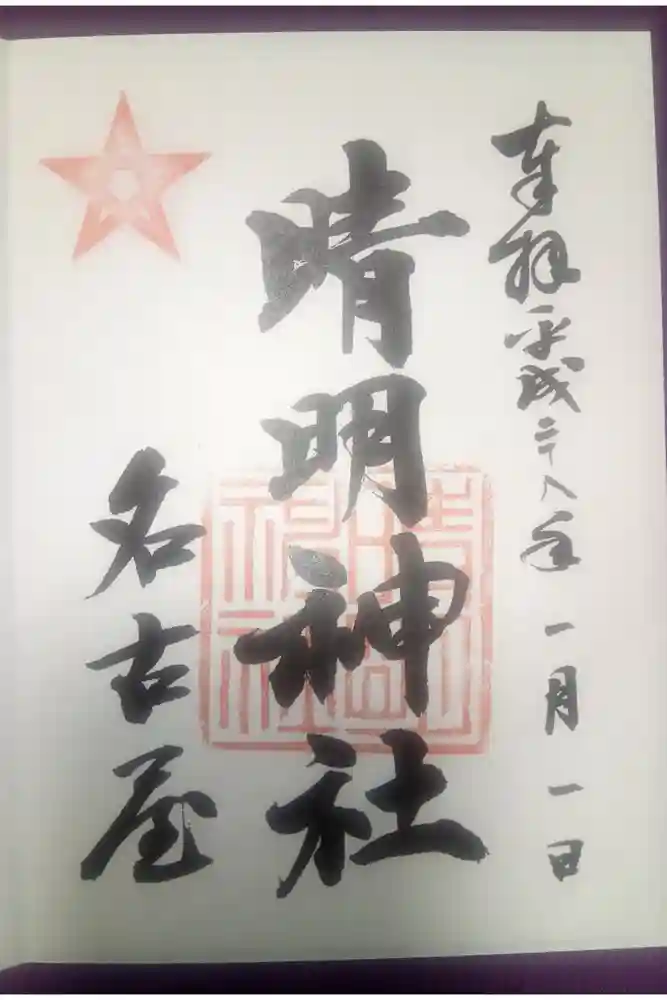 奉拝 平成二十八年 一月 一日
晴明神社
名古屋
晴明神社